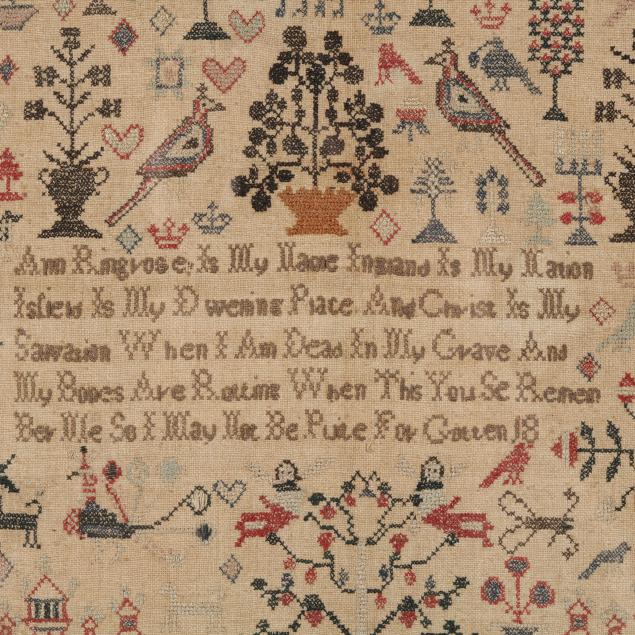 Ann Ringrose Is My Name Ingland Is My Nation
Isfield Is My Dwening Place And Christ Is My
Sarvation When I Am Dead In My Grave And
My Bones Are Rottine When This You Se Remem
Ber Me So I May Not Be Puite For Gotten 18